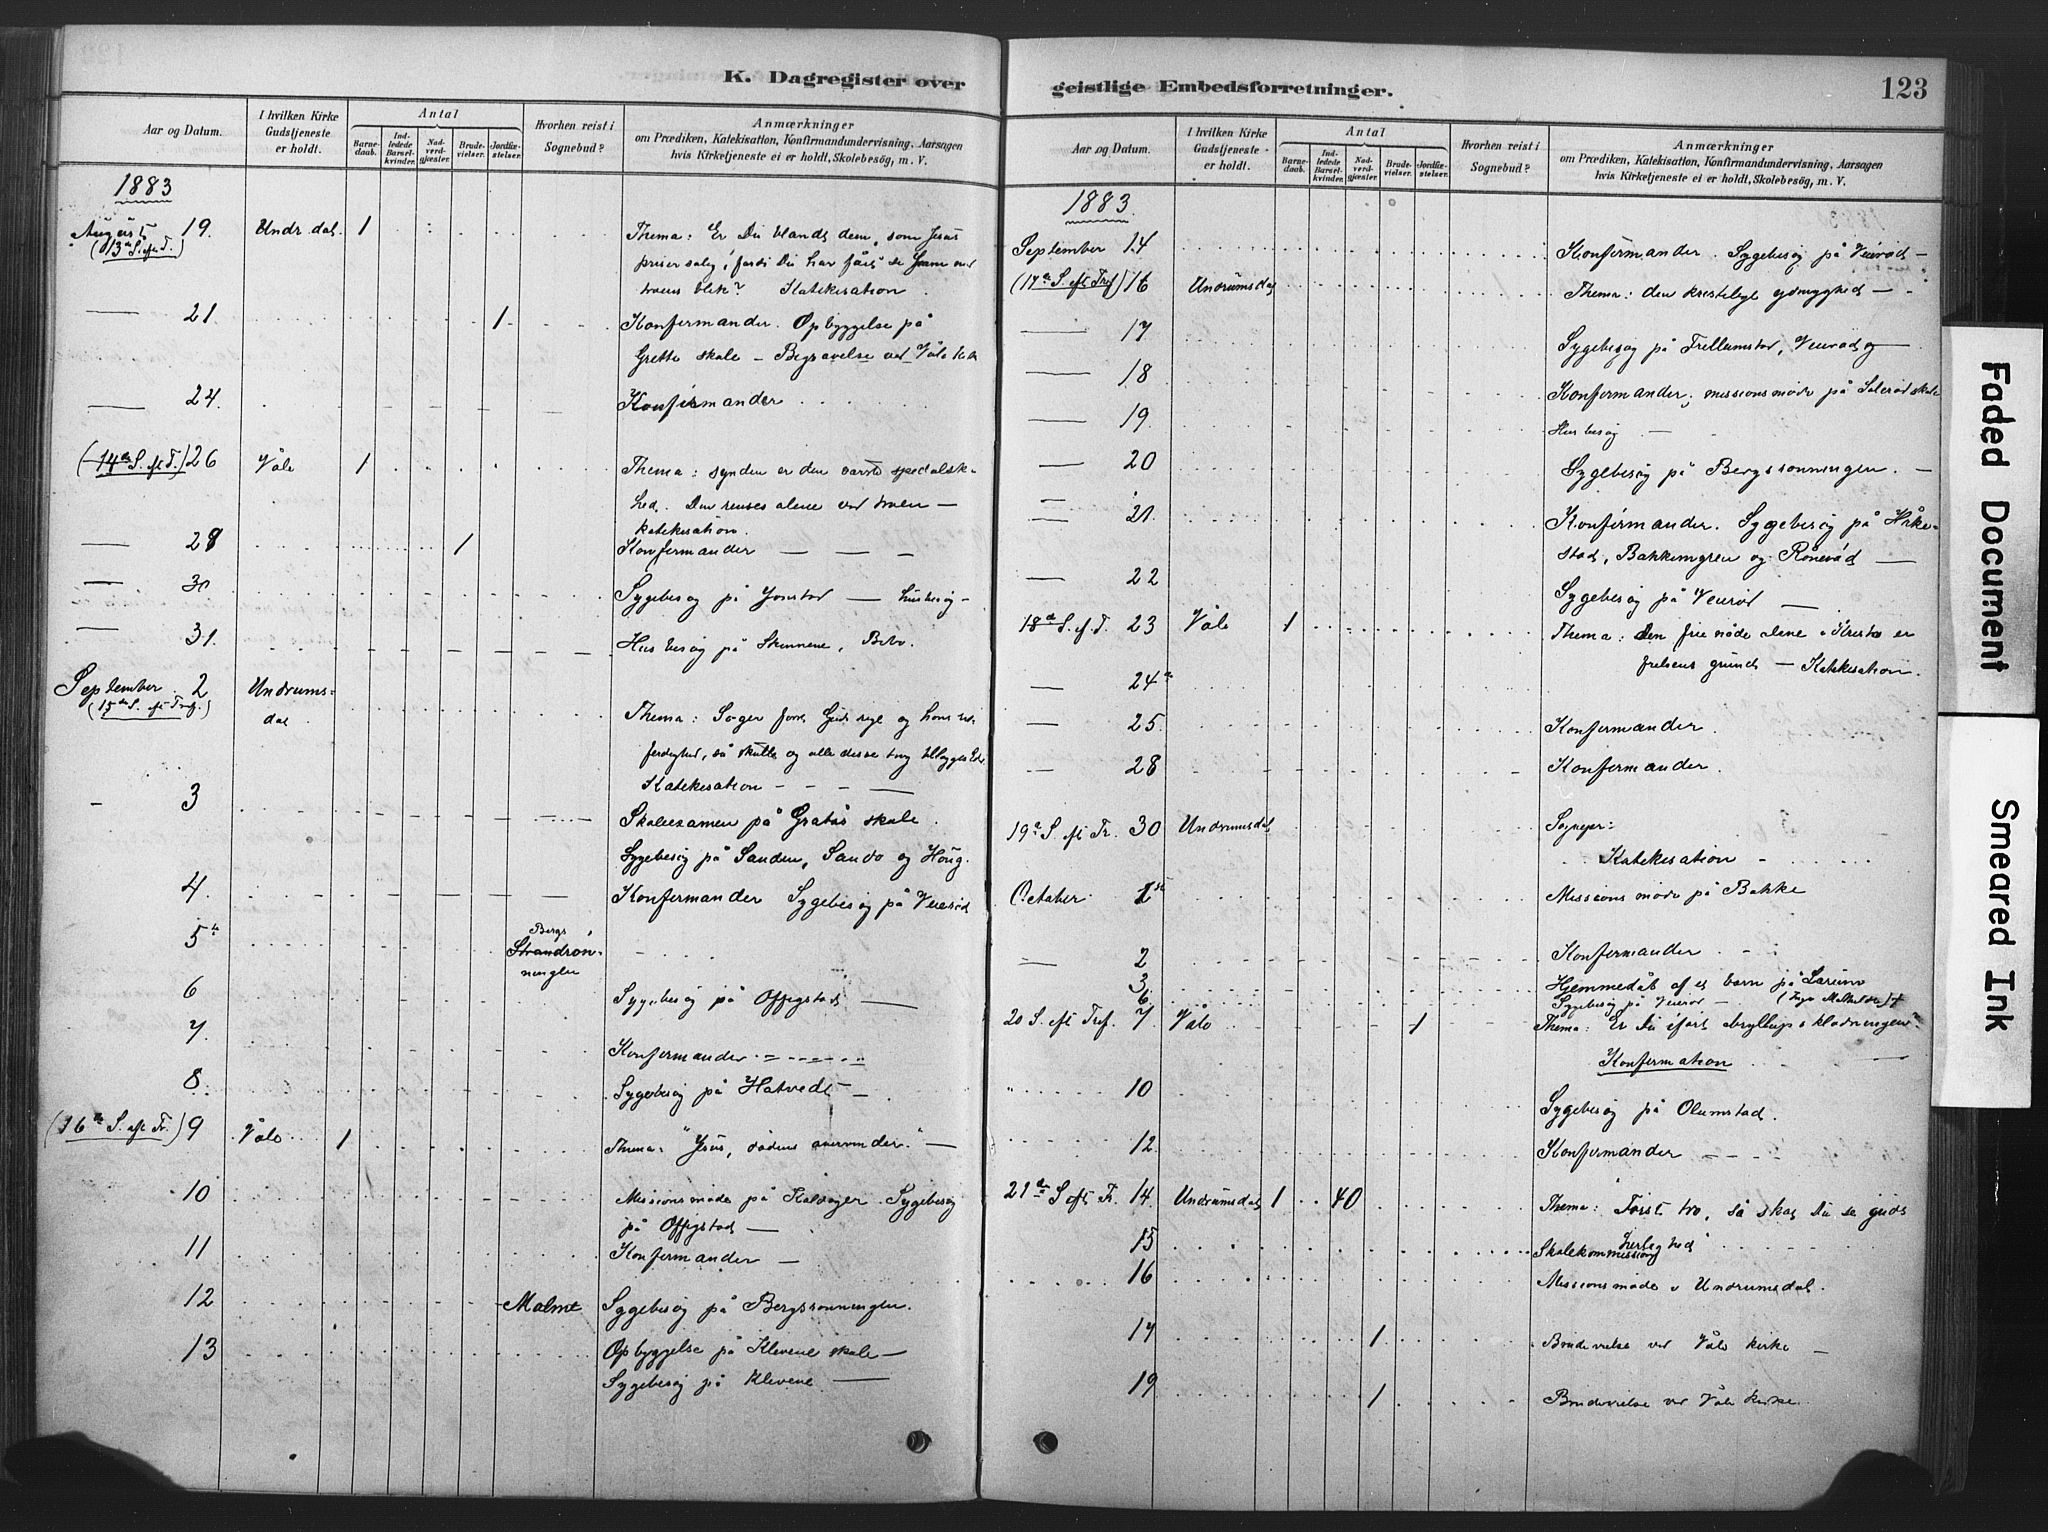 K. Dagregister over
Aar og Datum.
I hvilken Kirke Gudstjeneste er holdt.
Antal
Barnedaab.
Indledede Barselkvinder.
Nadverdgjester.
Brudevielser.
Jordfæstelser.
Hvorhen reist i Sognebud?
Anmærkninger
om Prædiken, Katekisation, Konfirmandundervisning, Aarsagen
hvis Kirketjeneste ei er holdt, Skolebesög, m. V.
1883
August 19. Undr.dal. 1 Thema: Er Du blandt dem, som Jesus
(13de S. eft. T.) priser salig, fordi Du har fått se ham med
troens blik? Katekisation
21. 1 Konfirmander. Opbyggelse på
Grette skole – Begravelse ved Våle kirke
24. Konfirmander
(14de S. eft. T.) 26 Våle 1 Thema: synden er den værste spedalsk-
hed. Den renses alene ved troen –
katekisation.
28 1 Konfirmander
30 Sygebesøg på Jonstad – husbesøg –
31. Husbesøg på Skinnene, Bibo.
September 2 Undrums-
(15de S. eft Tref.) dal Thema: Søger først Guds rige og hans ret-
ferdighed, så skulle og alle disse ting tillægges Eder
Katekisation
3 Skoleexamen på Gretås skole.
Sygebesøg på Sanden, Sando og Houg.
4. Konfirmander Sygebesøg på Veierød
5te Bergs
Strandrøn-
ningen
6 Sygebesøg på Offigstad
7. Konfirmander
8. Sygebesøg på Hatvedt –
(16de S. eft Tr.) 9 Våle 1 Thema: "Jesus, dødens overvinder." –
10 Missionsmøde på Kalvager. Sygebesøg
på Offigstad –
11 Konfirmander –
12 Malme Sygebesøg på Bergsrønningen.
13 Opbyggelse på Klevene skole –
Sygebesøg på Klevene
geistlige Embedsforretninger.
123
Aar og Datum.
I hvilken Kirke Gudstjeneste er holdt.
Antal
Barnedaab.
Indledede Barselkvinder.
Nadverdgjester.
Brudevielser.
Jordfæstelser.
Hvorhen reist i Sognebud?
Anmærkninger
om Prædiken, Katekisation, Konfirmandundervisning, Aarsagen
hvis Kirketjeneste ei er holdt, Skolebesög, m. V.
1883.
September 14 Konfirmander. Sygebesøg på Veierød –
(17de S. eft Tref) 16 Undrumsdal Thema: den kristelige ydmyghed –
17 Sygebesøg på Trellumstad, Veierød og
18 Konfirmander; missionsmøde på Solerød skole
19. Husbesøg –
20 Sygebesøg på Bergsrønningen. –
21. Konfirmander. Sygebesøg på Håke-
stad, Bakkengren og Rånerød –
22 Sygebesøg på Veierød –
18de S. ef. T. 23 Våle 1 Thema: Den frie nåde alene i Kristo er
frelsens grund – Katekisation.
24de
25. Konfirmander.
28 Konfirmander.
19de S. eft Tr. 30 Undrumsdal Sognepr:
Katekisation –
October 1ste Missionsmøde på Bakke
2 Konfirmander
3. Hjemmedåb af et barn på
6 Sygebesøg på Veierød –
20 S. eft Tref. 7. Våle 1 Thema: Er Du iført bryllupsklædningen?
Konfirmation
10 Sygebesøg på Olumstad.
12. Konfirmander
21de S. eft Tr. 14. Undrumsdal 1 40 Thema: "Først tro, så skal Du se guds
herlighed"
15 Skolekommission
16 Missionsmøde i Undrumsdal.
17 1 Brudevielse ved Våle kirke –
19 1 Brudevielse ved Våle kirke.
Faded Document
Smeared Ink